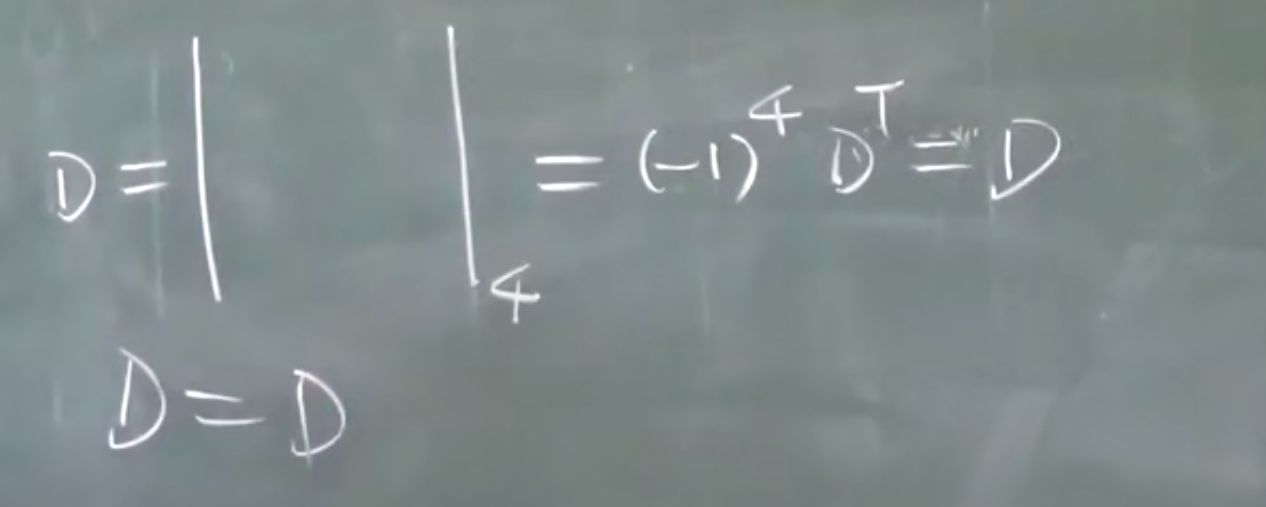 D = | |₄ = (-1)⁴ Dᵀ = D
D = D